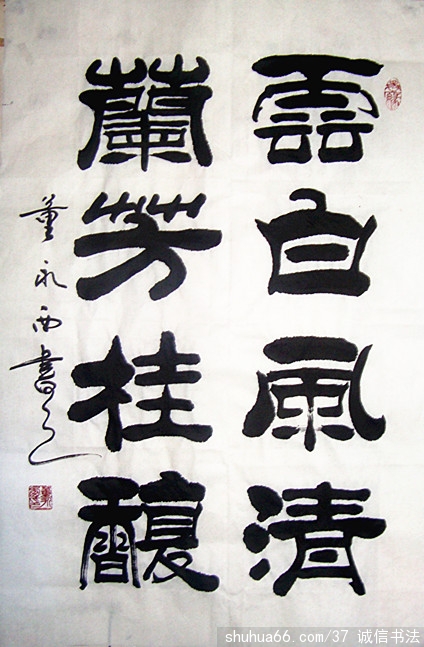 雲白風清
蘭芳桂馥
董永西書
shuhua66.com/37 诚信书法